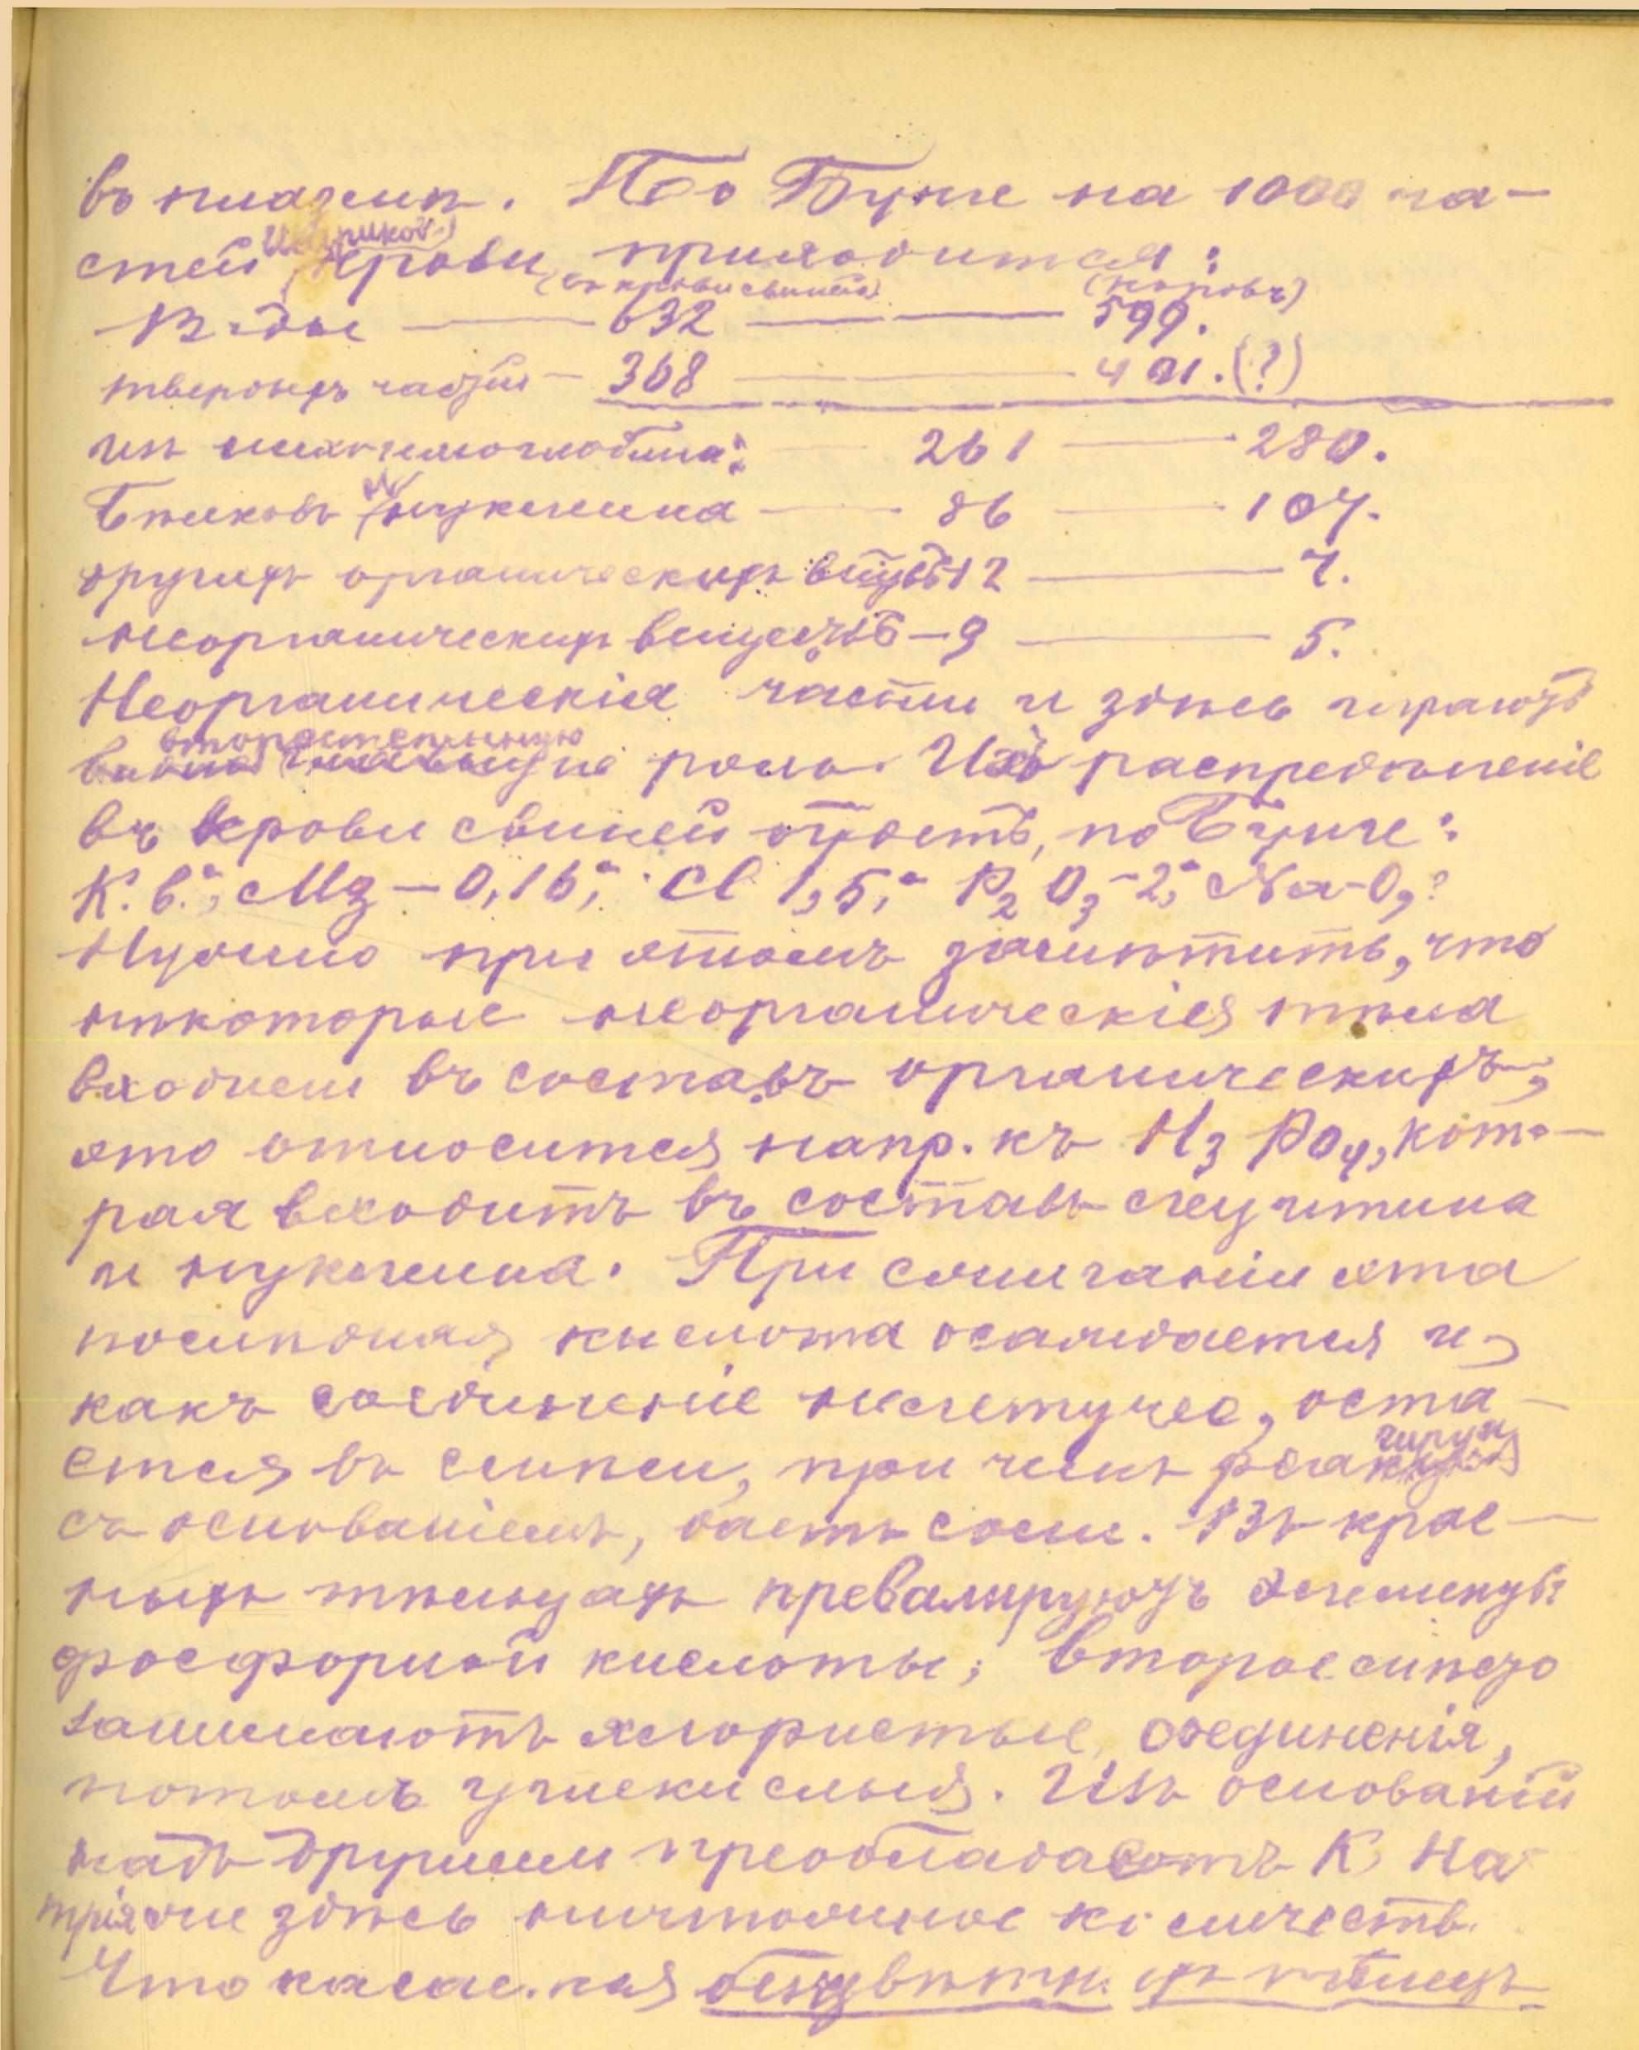 въ плазмѣ. По Бунге на 1000 ча-
стей крови приходится:
(въ крови свиней) (коровъ)
Воды — 632 — 599.
твердыхъ частей — 368 — 401. (?)
изъ нихъ гемоглобина: — 261 — 280.
Бѣлковъ и нуклеина — 86 — 107.
другихъ органическихъ вещствъ 12 — 7.
неорганическихъ веществъ — 9 — 5.
Неорганическія части и здѣсь играютъ
второстепенную
роль. Ихъ распредѣленіе
въ крови свиней просто, по Бунге:
Mg — 0,16; Cl 1,5; P2O3 - 2; Na - 0,?
Нужно при этомъ замѣтить, что
нѣкоторые неорганическія тѣла
входили въ составъ органическихъ,
это относится напр. къ H3PO4, кото-
рая входитъ въ составъ лецитина
и нуклеина. При сжиганіи эта
послѣдняя кислота осаждается и,
какъ соединеніе нелетучее, оста-
ется въ смѣси, при чемъ реагируя
съ основаніемъ, даетъ соли. Въ крас-
ныхъ тѣльцахъ превалируютъ элементы
фосфорной кислоты; второе мѣсто
занимаютъ хлористые соединенія,
потомъ углекислыя. Изъ основаній
надъ другими преобладаетъ K, На
трія же здѣсь ничтожное количеств.
Что касается безцвѣтныхъ тѣлецъ